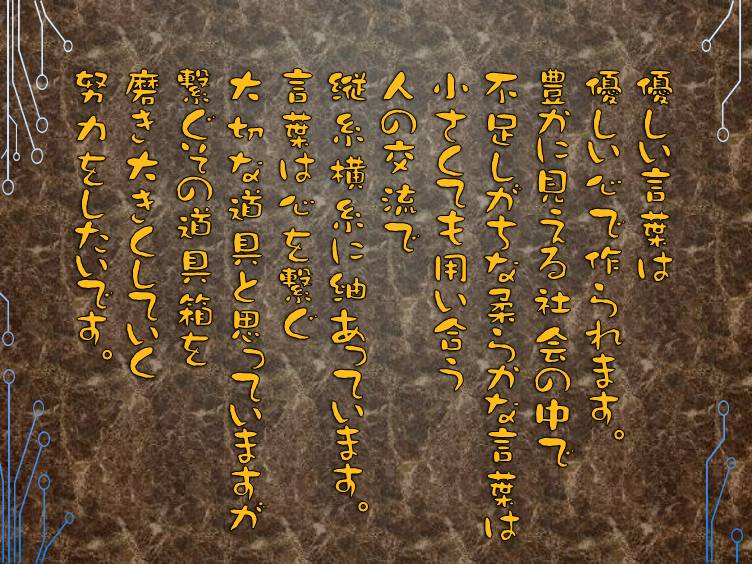 優しい言葉は
優しい心で作られます。
豊かに見える社会の中で
不足しがちな柔らかな言葉は
小さくても用い合う
人の交流で
縦糸横糸に紬あっています。
言葉は心を繋ぐ
大切な道具と思っていますが
繋ぐその道具箱を
磨き大きくしていく
努力をしたいです。